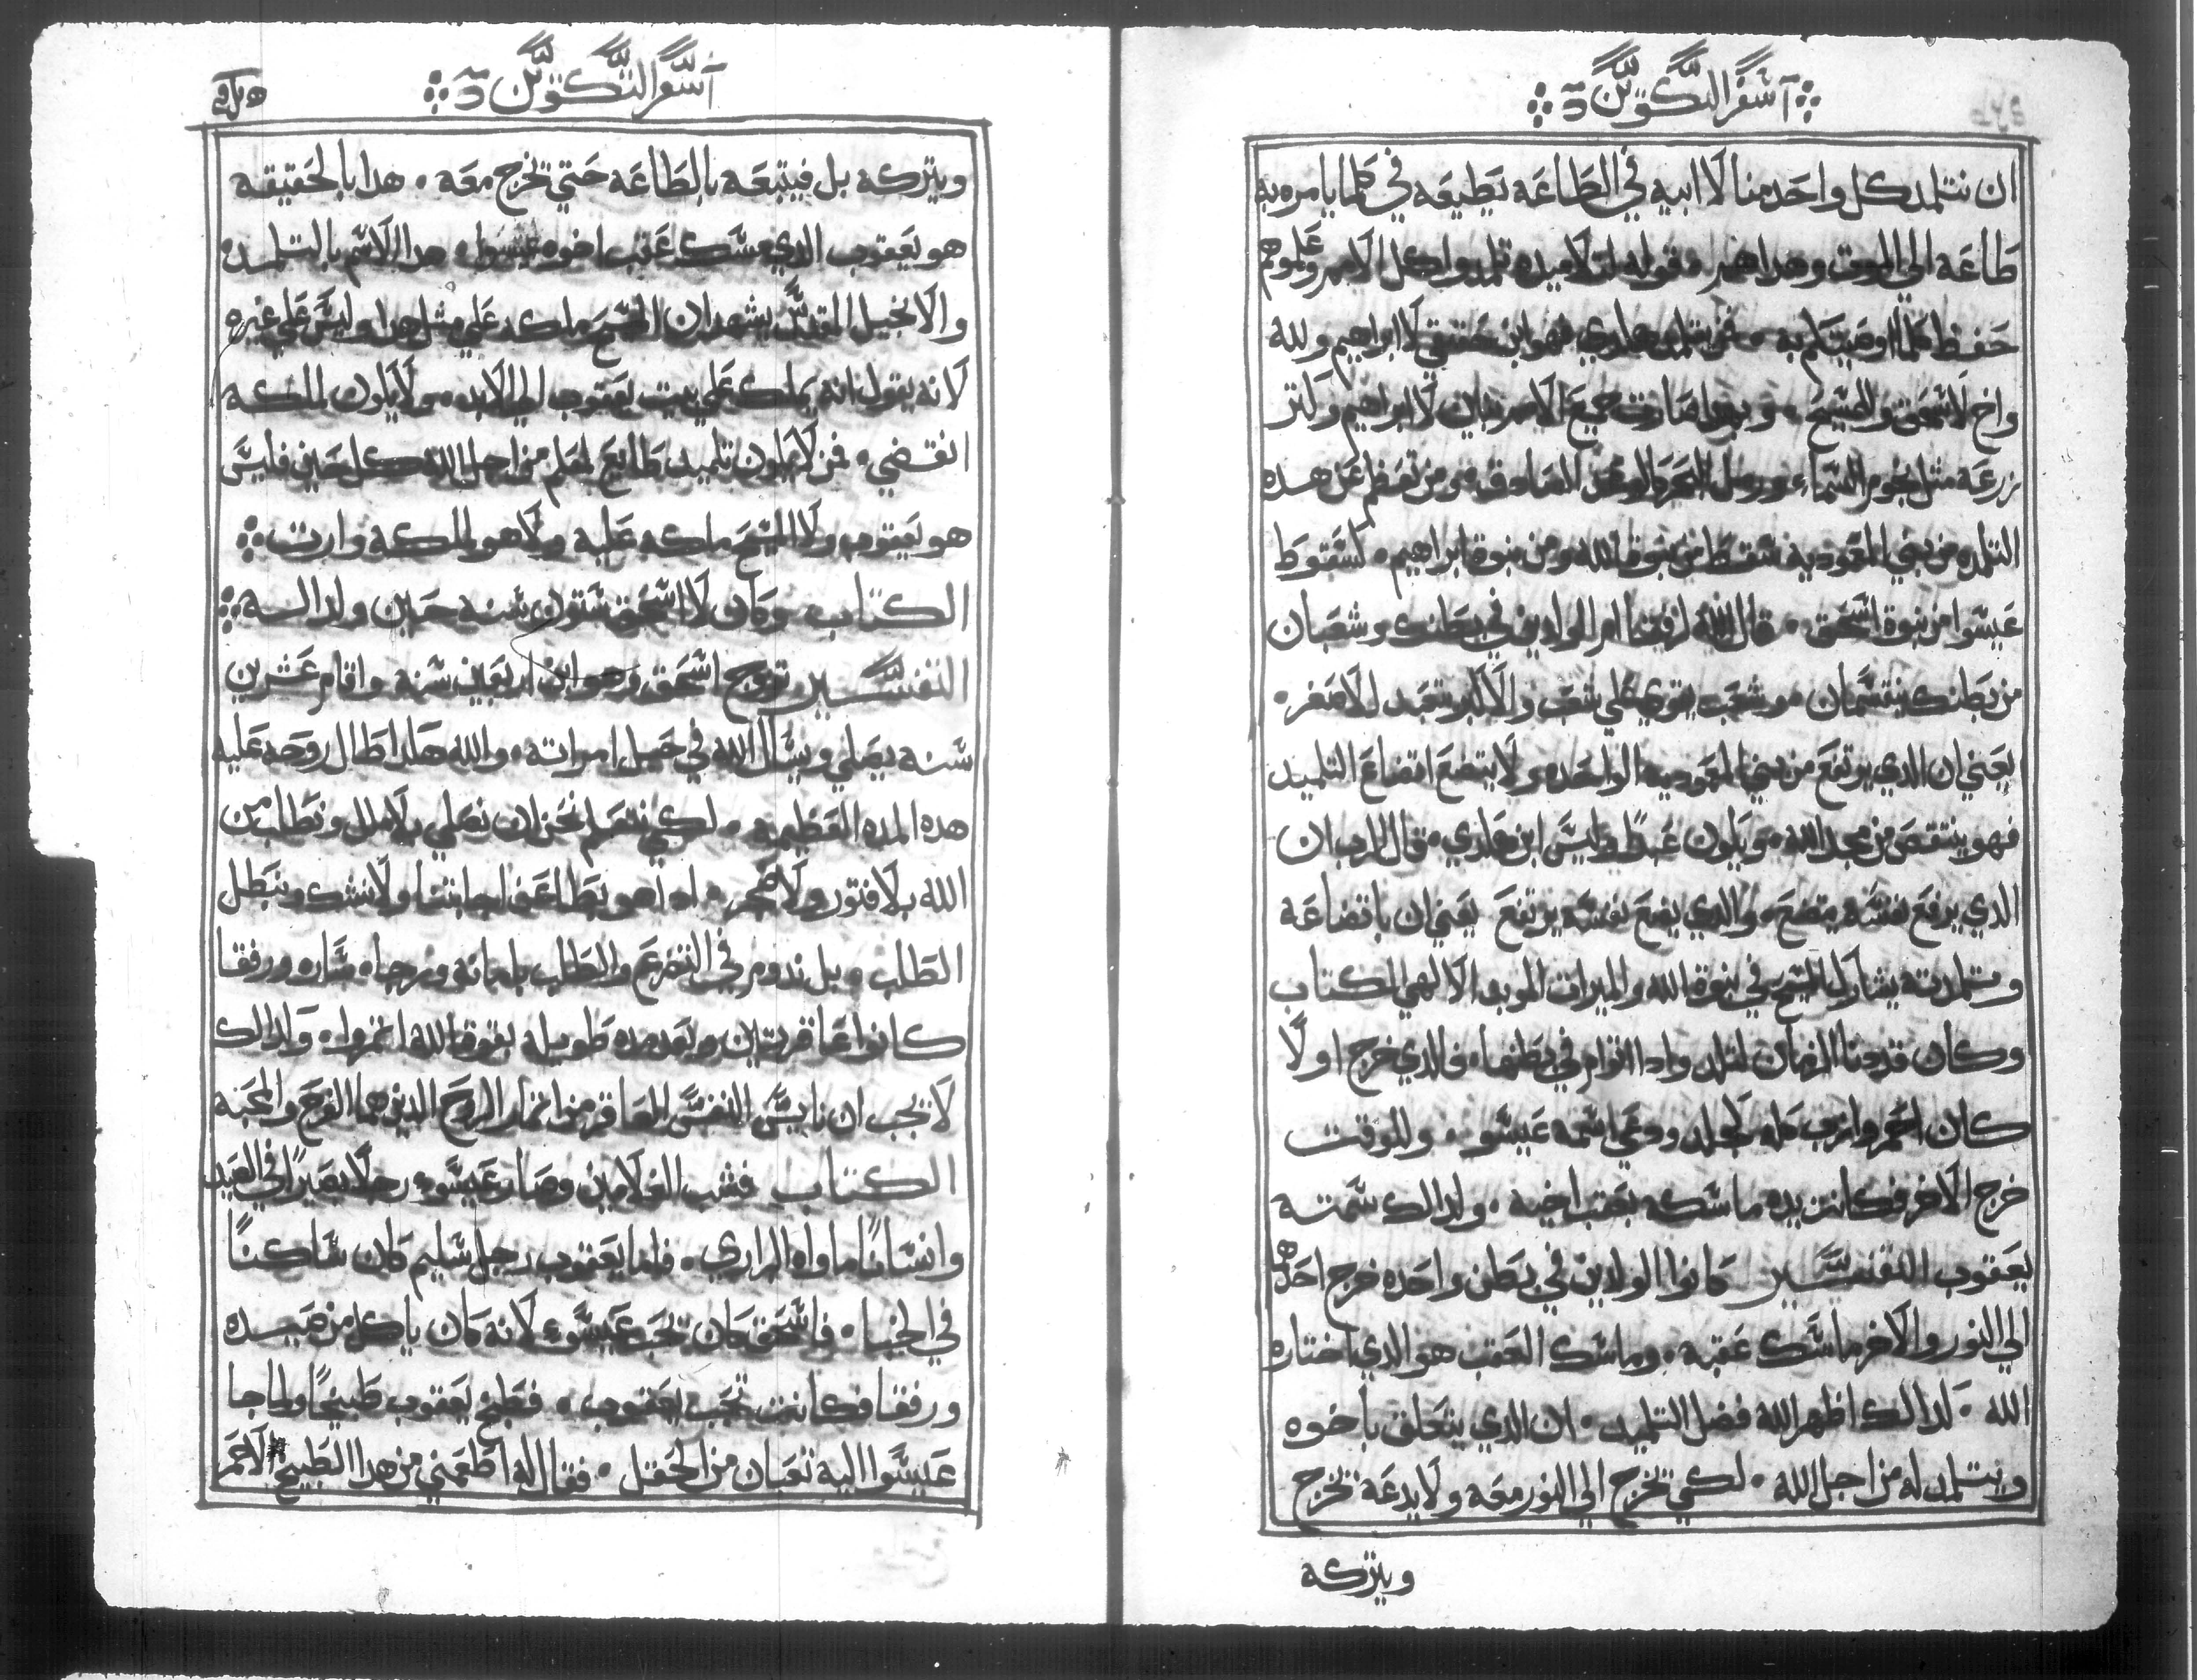 اسفر التكوين
ان نتلمد كل واحد منا لا ابيه في الطاعه يطيعه في كلما يامره به
طاعه الي الموت وهدا هو قوله لتلاميده تلمدوا كل الامم وعلموهم
حفظ كلما اوصيتكم به ٠ فمن تلمد هكدي فهو ابن حقيقي لا ابراهيم ولله
واخ لاسحق والمسيح ٠ وبهدا صارت جميع الامم بنين لا ابراهيم وكتر
زرعه مثل نجوم السماء ورمل البحر كالوعد الصادق ٠ ومن تعظم عن هده
التلمده من بني المعموديه سقط من بنوة الله ومن بنوة ابراهيم ٠ كسقوط
عيسوا من بنوة اسحق ٠ قال الله لرفقا ام الوادين في بطنك وشعبان
من بطنك ينقسمان ٠ وشعب يقوي علي شعب والاكبر يتعبد للاصغر ٠
يعني ان الدي يرتفع من بني المعموديه الواحده ولا يتضع اتضاع التلميد
فهو ينتقص من مجد الله ٠ ويكون عبدًا وليس ابن هكدي ٠ قال الرب ان
الدي يرفع نفسه يتضع ٠ والدي يضع نفسه يرتفع يعني ان باتضاعه
وتلمدته يشارك المسيح في بنوة الله والميرات الموبد الالهي الكتاب
وكان قد دنا الزمان لتلد وادا اتوام في بطنها ٠ فالدي خرج اولًا
كان احمر وازب كله كجلد ودعي اسمه عيسو ٠ وللوقت
خرج الاخر فكانت يده ماسكه بعقب اخيه ٠ ولدالك سمته
يعقوب التفسير كانوا الولدين في بطن واحده خرج احدهما
الي النور والاخر ماسك عقبه ٠ وماسك العقب هو الدي اختاره
الله ٠ لدالك اظهر الله فضل التلميد ٠ ان الدي يتعلق باخوه
ويتلمد له من اجل الله ٠ لكي تخرج الي النور معه ولا يدعه تخرج
ويتركه
اسفر التكوين
ويتركه بل فيتبعه بالطاعه حتي تخرج معه ٠ هدا بالحقيقه
هو يعقوب الدي مسك عقب اخوه عيسوا ٠ هدا الاسم بالتلمده
والانجيل المقدس يشهد ان المسيح ملكه علي مثل هدا وليس علي غيره
لانه يقول انه يملك علي بيت يعقوب الي الابد ٠ ولا يكون لملكه
انقضي ٠ فمن لا يكون تلميد طايع لمعلم من اجل الله كل حين فليس
هو يعقوب ولا المسيح ملكه عليه ولا هو لملكه وارت
الكتاب وكان لا اسحق ستون سنه حين ولد له
التفسير وتزوج اسحق وهو ابن اربعين سنه واقام عشرين
سنه يصلي ويسال الله في حبل امراته ٠ والله هكدا طال روحه عليه
هده المده العظيمه ٠ لكي نتعلم نحن ان نصلي بلا ملل ونطلب من
الله بلا فتور ولا ضجر ٠ ادا هو بطا عن اجابتنا ولا نشك ونبطل
الطلب ٠ بل ندوم في التضرع والطلب بامانه ورجاه ساره ورفقا
كانوا عاقرتين وبعد مده طويله بقوة الله اتمروا ٠ وكدالك
لا يجب ان ناييس النفس العاقر من اتمار الروح الدين هما الفرح والمحبه
الكتاب فشب الغلامين وصار عيسوء رجلا بصيرًا في الصيد
وانسانًا ماواه البراري ٠ فاما يعقوب رجل سليم كان ساكنًا
في الخبا ٠ فاسحق كان يحب عيسوء لانه كان ياكل من صيده
ورفقا فكانت تحب يعقوب ٠ فطبخ يعقوب طبيخًا ولما جا
عيسوا اليه تعبان من الحقل ٠ فقال له اطعمني من هدا الطبيخ الاحمر